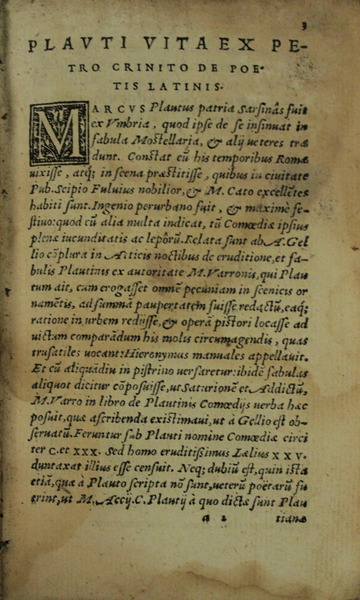 3
PLAVTI VITA EX PE-
TRO CRINITO DE POE-
TIS LATINIS.
MARCVS Plautus patria Sarsinâs fuit
ex Vmbria, quod ipse de se insinuat in
fabula Mostellaria, & alij ueteres tra
dunt. Constat cũ his temporibus Romæ
uixisse, atq; in scena præstitisse, quibus in ciuitate
Pub. Scipio Fuluius nobilior, & M. Cato excellẽtes
habiti sunt. Ingenio perurbano fuit, & maximè fe-
stiuo: quod cũ alia multa indicat, tũ Comœdiæ ipsius
plenæ iucunditatis ac leporũ. Relata sunt ab A. Gel
lio cõplura in Atticis noctibus de eruditione, et fa-
bulis Plautinis ex autoritate M. Varronis, qui Plau
tum ait, cum erogasset omnẽ pecuniam in scenicis or
namẽtis, ad summã paupertatem fuisse redactũ, eaq;
ratione in urbem redijsse, & operã pistori locasse ad
uictam comparãdum his molis circumagendis, quas
trusatiles uocant: Hieronymus manuales appellauit.
Et cũ aliquãdiu in pistrino uersaretur: ibidẽ fabulas
aliquot dicitur cõposuisse, ut Saturionẽ et Addictũ,
M. Varro in libro de Plautinis Comœdijs uerba hæc
posuit, quæ ascribenda existimaui, ut à Gellio est ob-
seruatũ. Feruntur sub Plauti nomine Comœdiæ circi
ter C. et XXX. Sed homo eruditissimus Lælius XXV.
duntaxat illius esse censuit. Neq; dubiũ est, quin istæ
etiã, quæ à Plauto scripta nõ sunt, ueterũ poëtarũ fu
erint, ut M. Accij. C. Plautij à quo dictæ sunt Plau
a 2 tianæ